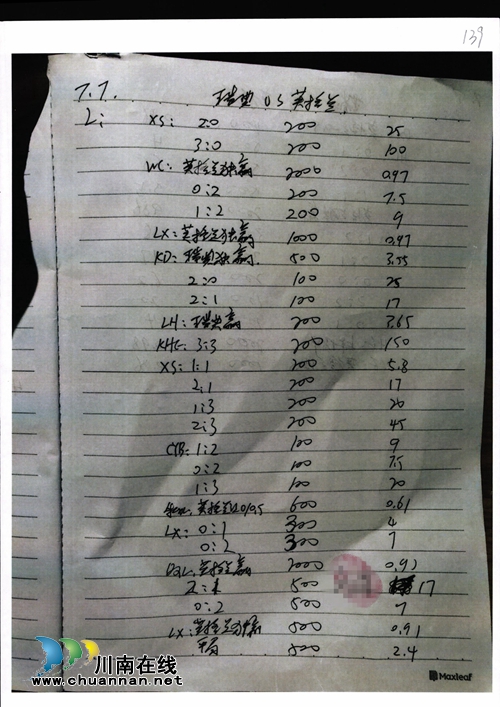 139
7.7. 瑞典 OS 英格兰
L: XS: 2:0 200 25
3:0 200 100
WC: 英格兰独赢 2000 0.97
0:2 200 7.5
1:2 200 9
LX: 英格兰独赢 1000 0.97
KD: 瑞典独赢 500 3.55
2:0 100 25
2:1 100 17
LH: 瑞典赢 200 3.65
KHC: 3:3 200 150
XS: 1:1 200 5.8
2:1 200 17
1:3 200 20
2:3 200 45
CYB: 1:2 100 9
0:2 100 7.5
1:3 100 20
英格兰 0/0.5 600 0.61
LX: 0:1 300 4
0:2 300 7
DQL: 英格兰赢 2000 0.97
500 17
0:2 500 7
LX: 英格兰独赢 500 0.91
500 2.4
川南在线
www.chuannan.net
Maxleaf